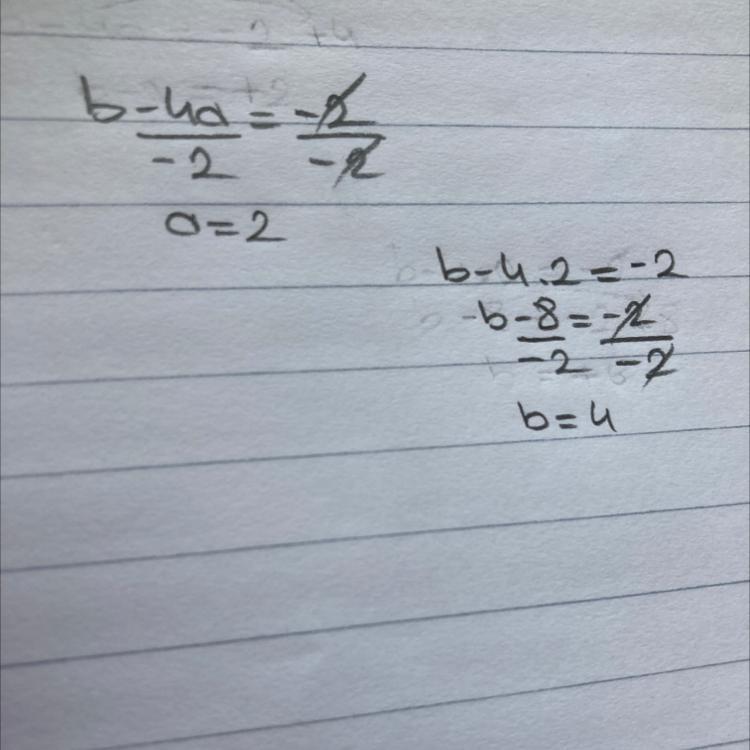 b-4a = -2
-2 -2
a=2
b-4.2 = -2
-b-8 = -2
-2 -2
b=4